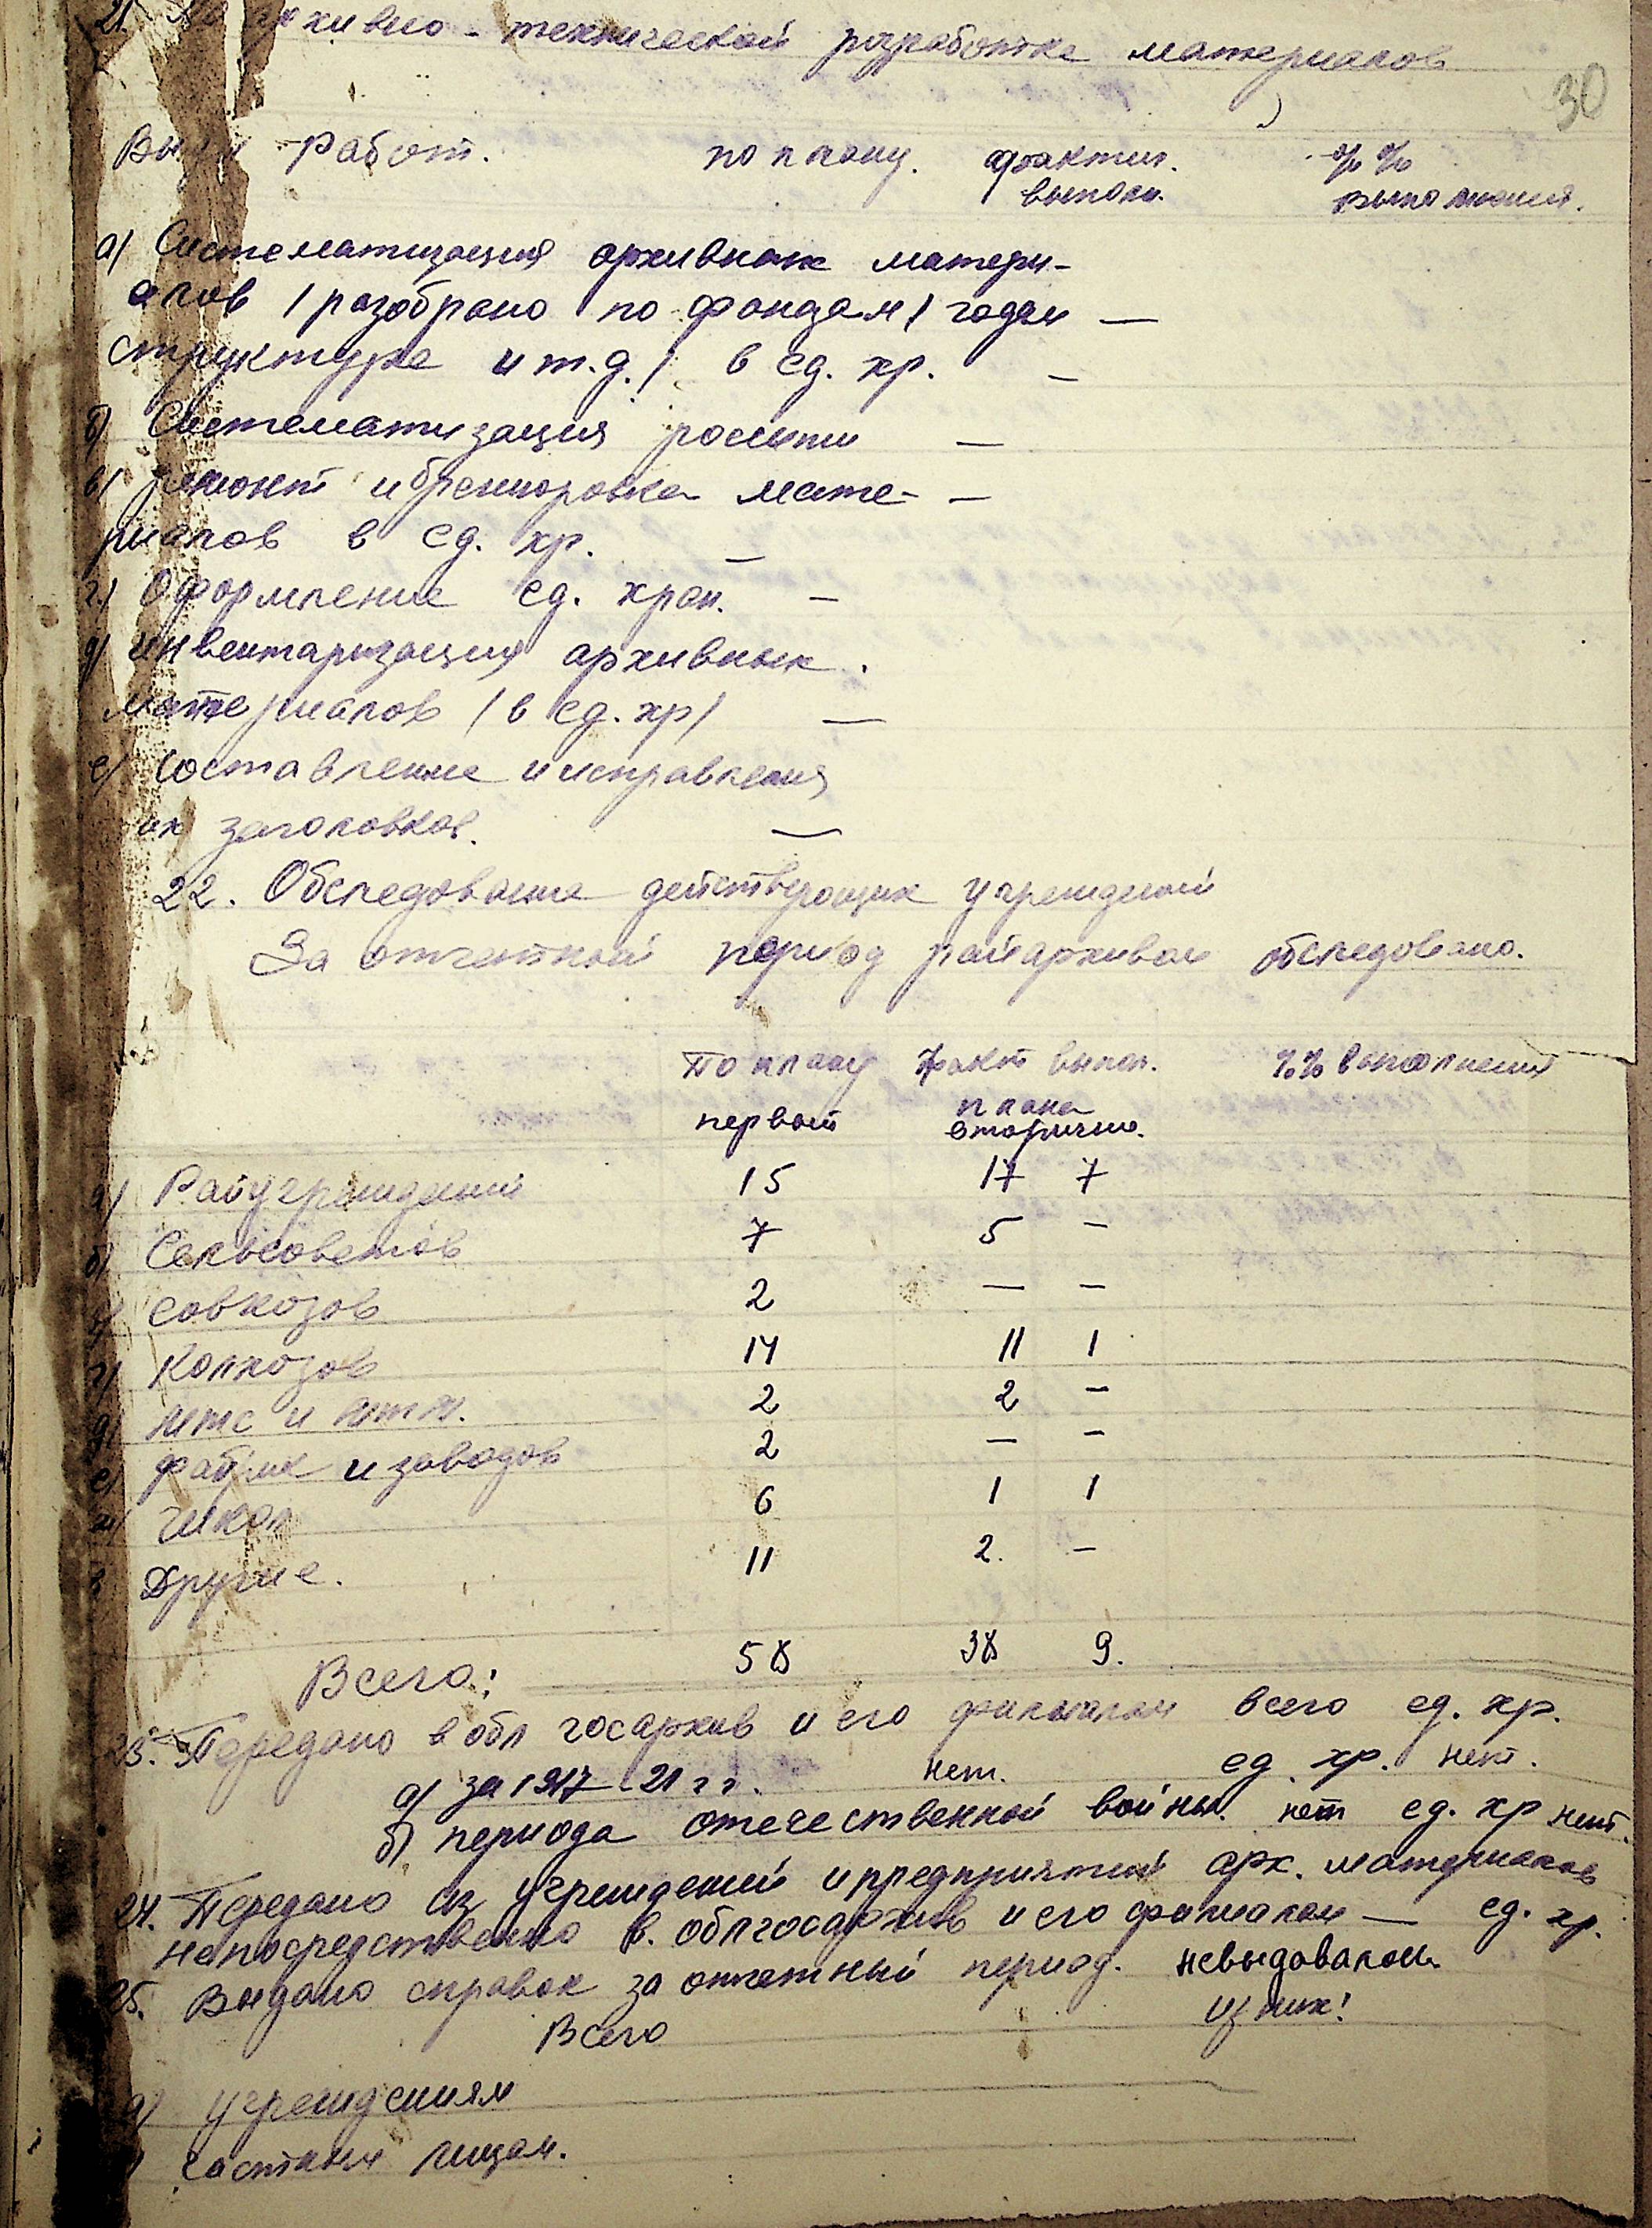 21. архивно-технической разработке материалов
30
Виды работ. по плану. фактич. %%
выполн. выполнения.
а) Систематизация архивных матери-
алов /разобрано по фондам/ годам —
структуре и т.д./ в ед. хр. —
б) Систематизация россыпи —
в) ремонт и брошюровка мате- —
риалов в ед. хр. —
г) Оформление ед. хран. —
д) инвентаризация архивных.
материалов /в ед. хр/ —
е) составление и исправления
их заголовков. —
22. Обследование действующих учреждений
За отчетный период райархивом обследовано.
По плану факт выпол. %% выполнения
первый плана
вторично.
а) Райучреждений 15 17 7
б) Сельсоветов 7 5 -
в) Совхозов 2 — —
г) Колхозов 14 11 1
д) мтс и мтм. 2 2 -
е) фабрик и заводов 2 — -
ж) школ 6 1 1
з Другие. 11 2. -
Всего: 58 38 9.
23. Передано в обл госархив и его филиалам всего ед. хр.
а) за 1917-21 гг. нет. ед. хр. нет.
б) периода отечественной войны. нет ед. хр нет.
24. Передано из учреждений и предприятий арх. материалов
непосредственно в. облгосархив и его филиалам — ед. хр.
25. Выдано справок за отчетный период. невыдовалом
Всего из них:
а) учреждениям
частным лицам.